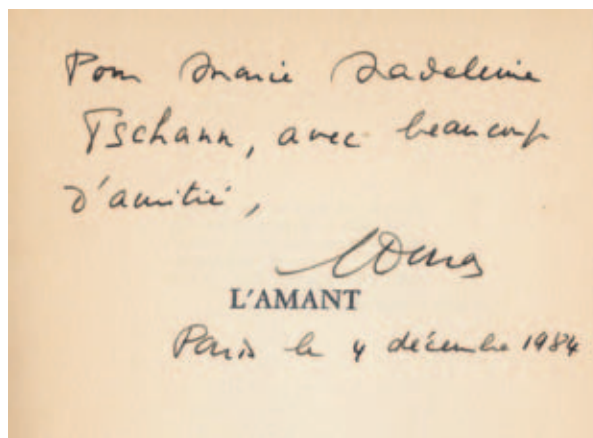 Pour Marie Madeleine
Tschann, avec beaucoup
d'amitié,
Duras
L'AMANT
Paris le 4 décembre 1984